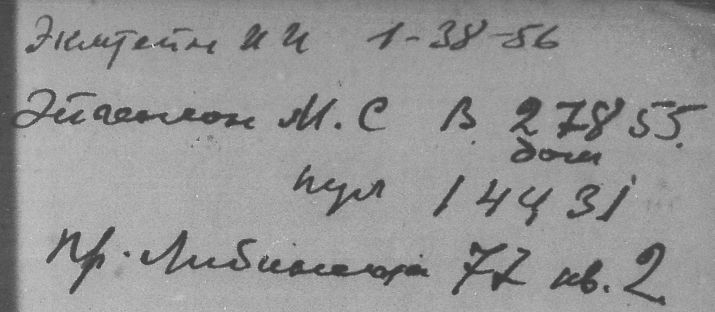 Экштейн И И 1-38-56
Эйгенсон М. С В 278 55.
дом
пул 1 4 4 31
пр. Либкнехта 77 кв. 2